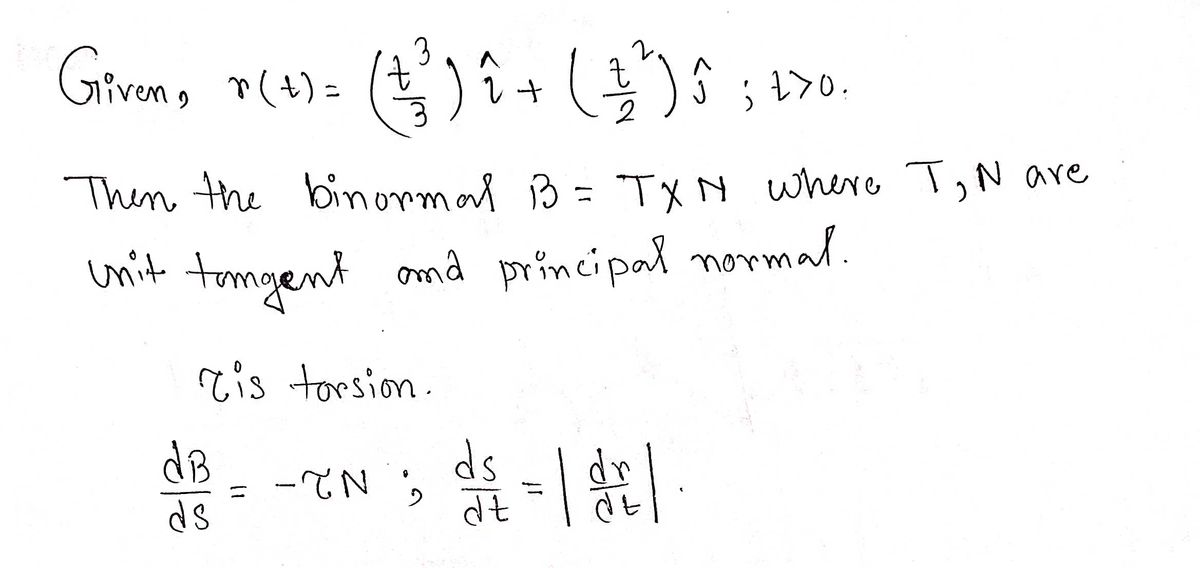 Given, r(t) = (t³/3) î + (t²/2) ĵ ; t>0.
Then the binormal B = T×N where T, N are
unit tangent and principal normal.
τ is torsion.
dB/ds = -τN ; ds/dt = |dr/dt|.